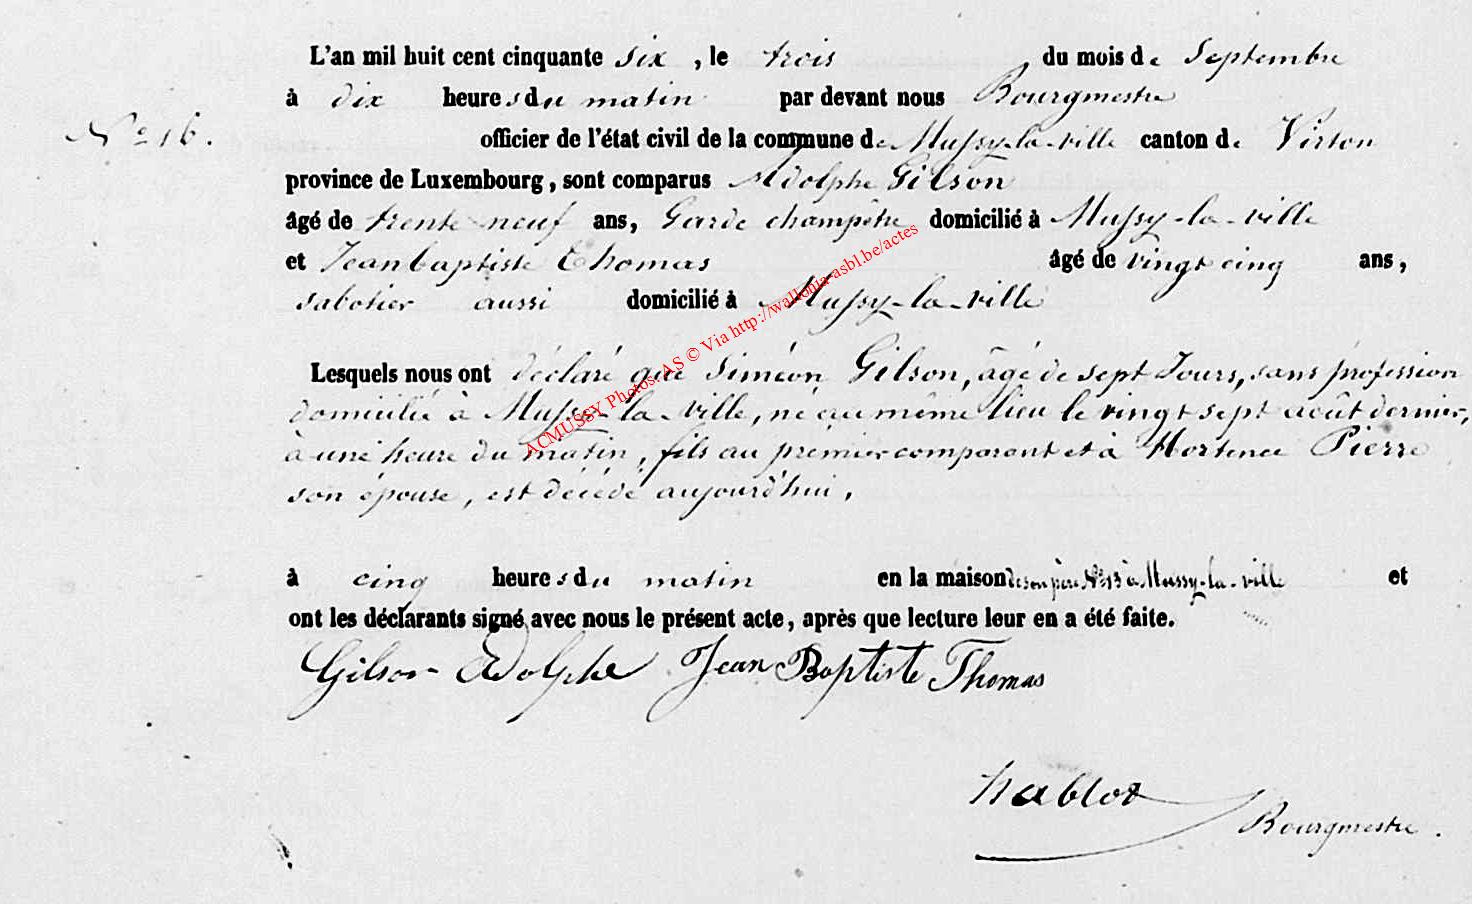 L'an mil huit cent cinquante six, le trois du mois de Septembre
à dix heures du matin par devant nous Bourgmestre
N° 16. officier de l'état civil de la commune de Mussy-la-ville canton de Virton
province de Luxembourg, sont comparus Adolphe Gilson
âgé de trente-neuf ans, Garde champêtre domicilié à Mussy-la-ville
et Jean baptiste Thomas âgé de vingt cinq ans,
sabotier aussi domicilié à Mussy-la-ville
Lesquels nous ont déclaré que Siméon Gilson, âgé de sept Jours, sans profession
domicilié à Mussy-la-ville, né au même lieu le vingt sept août dernier,
à une heure du matin, fils au premier comparant et à Hortence Pierre
son épouse, est décédé aujourd'hui,
à cinq heures du matin en la maison de son père N° 13 à Mussy-la-ville et
ont les déclarants signé avec nous le présent acte, après que lecture leur en a été faite.
Gilson Adolphe Jean Baptiste Thomas
hablot
Bourgmestre.
ACMUSSY Photos: AS © Via http://wallonia-asbl.be/actes